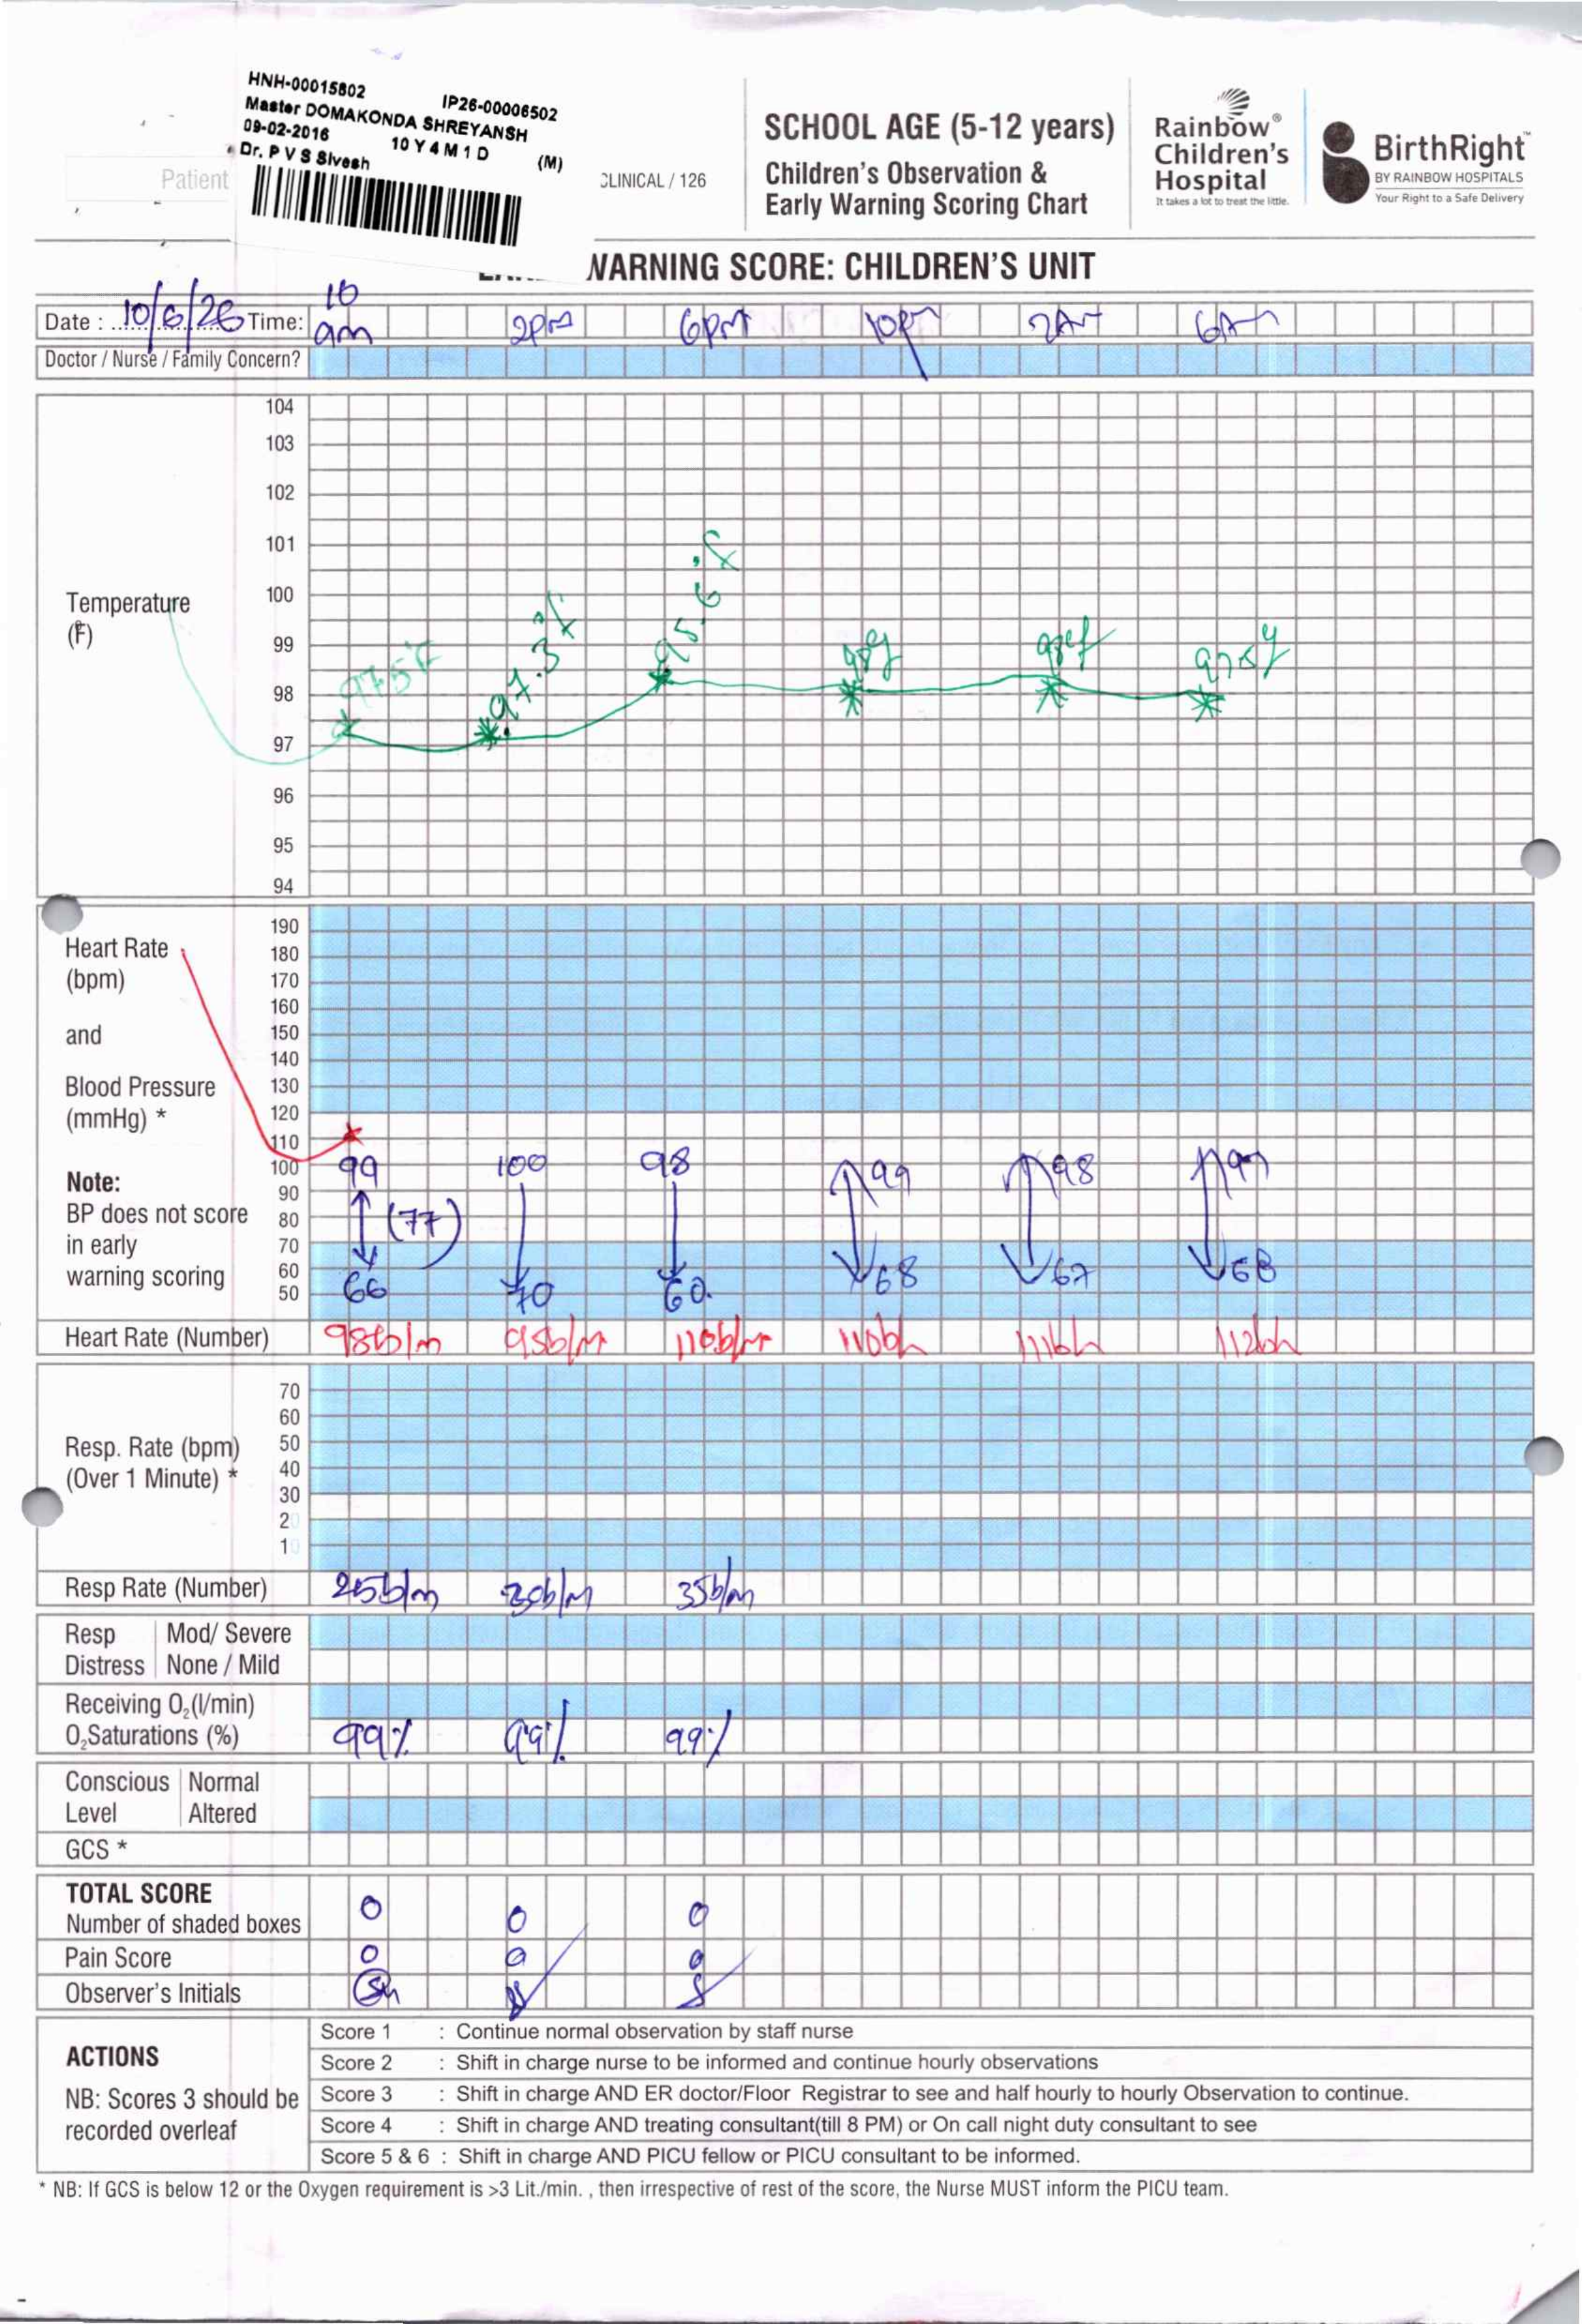 HNH-00015802 IP26-00006502
Master DOMAKONDA SHREYANSH
09-02-2016 10 Y 4 M 1 D (M)
Dr. P V S Sivesh
Patient
CLINICAL / 126
SCHOOL AGE (5-12 years)
Children's Observation &
Early Warning Scoring Chart
Rainbow®
Children's
Hospital
It takes a lot to treat the little.
BirthRight™
BY RAINBOW HOSPITALS
Your Right to a Safe Delivery
WARNING SCORE: CHILDREN'S UNIT
Date : 10/6/26 Time: 10 am 2PM 6PM 10PM 2AM 6AM
Doctor / Nurse / Family Concern?
104
103
102
101
100
Temperature
(°F)
99
98
97
96
95
94
97.5°F 97.3°F 98°F 98°F
190
Heart Rate 180
(bpm) 170
160
and 150
140
Blood Pressure 130
(mmHg) * 120
110
100 99 100 98 99 98 99
Note: 90
BP does not score 80 (77)
in early 70
warning scoring 60
50 66 70 60. 68 67 68
Heart Rate (Number) 98b/m 95b/m 110b/m 110b/m 111b/m 112b/m
70
60
Resp. Rate (bpm) 50
(Over 1 Minute) * 40
30
20
10
Resp Rate (Number) 25b/m 30b/m 35b/m
Resp Mod/ Severe
Distress None / Mild
Receiving O₂(l/min)
O₂Saturations (%) 99% 99% 99%
Conscious Normal
Level Altered
GCS *
TOTAL SCORE
Number of shaded boxes 0 0 0
Pain Score 0 0 0
Observer's Initials Sh
ACTIONS
NB: Scores 3 should be
recorded overleaf
Score 1 : Continue normal observation by staff nurse
Score 2 : Shift in charge nurse to be informed and continue hourly observations
Score 3 : Shift in charge AND ER doctor/Floor Registrar to see and half hourly to hourly Observation to continue.
Score 4 : Shift in charge AND treating consultant(till 8 PM) or On call night duty consultant to see
Score 5 & 6 : Shift in charge AND PICU fellow or PICU consultant to be informed.
* NB: If GCS is below 12 or the Oxygen requirement is >3 Lit./min. , then irrespective of rest of the score, the Nurse MUST inform the PICU team.